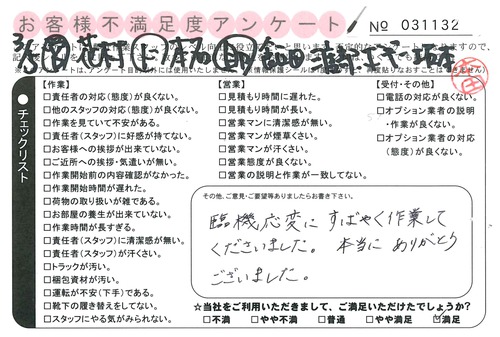 お客様不満足度アンケート
No 031132
チェックリスト
【作業】
□責任者の対応(態度)が良くない。
□他のスタッフの対応(態度)が良くない。
□作業を見ていて不安がある。
□責任者(スタッフ)に好感が持てない。
□お客様への挨拶が出来ていない。
□ご近所への挨拶・気遣いが無い。
□作業開始前の内容確認がなかった。
□作業開始時間が遅れた。
□荷物の取り扱いが雑である。
□お部屋の養生が出来ていない。
□作業時間が長すぎる。
□責任者(スタッフ)に清潔感が無い。
□責任者(スタッフ)が汗くさい。
□トラックが汚い。
□梱包資材が汚い。
□運転が不安(下手)である。
□靴下の履き替えをしてない。
□スタッフにやる気がみられない。
【営業】
□見積もり時間に遅れた。
□見積もり時間が長い。
□営業マンに清潔感が無い。
□営業マンが煙草くさい。
□営業マンが汗くさい。
□営業態度が良くない。
□営業の説明と作業が一致してない。
【受付・その他】
□電話の対応が良くない。
□オプション業者の説明
・作業が良くない。
□オプション業者の対応
(態度)が良くない。
その他、ご意見・ご要望等ありましたらお書き下さい。
臨機応変に すばやく作業して
くださいました。 本当に ありがとう
ございました。
☆当社をご利用いただきまして、ご満足いただけたでしょうか?
□不満 □やや不満 □普通 □やや満足 ☑満足